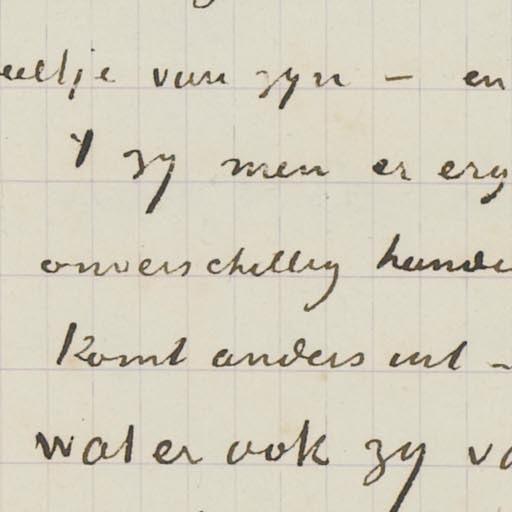 eeltje van zyn – en
't zy men er erg
onverschillig hande
Komt anders uit –
wat er ook zy va